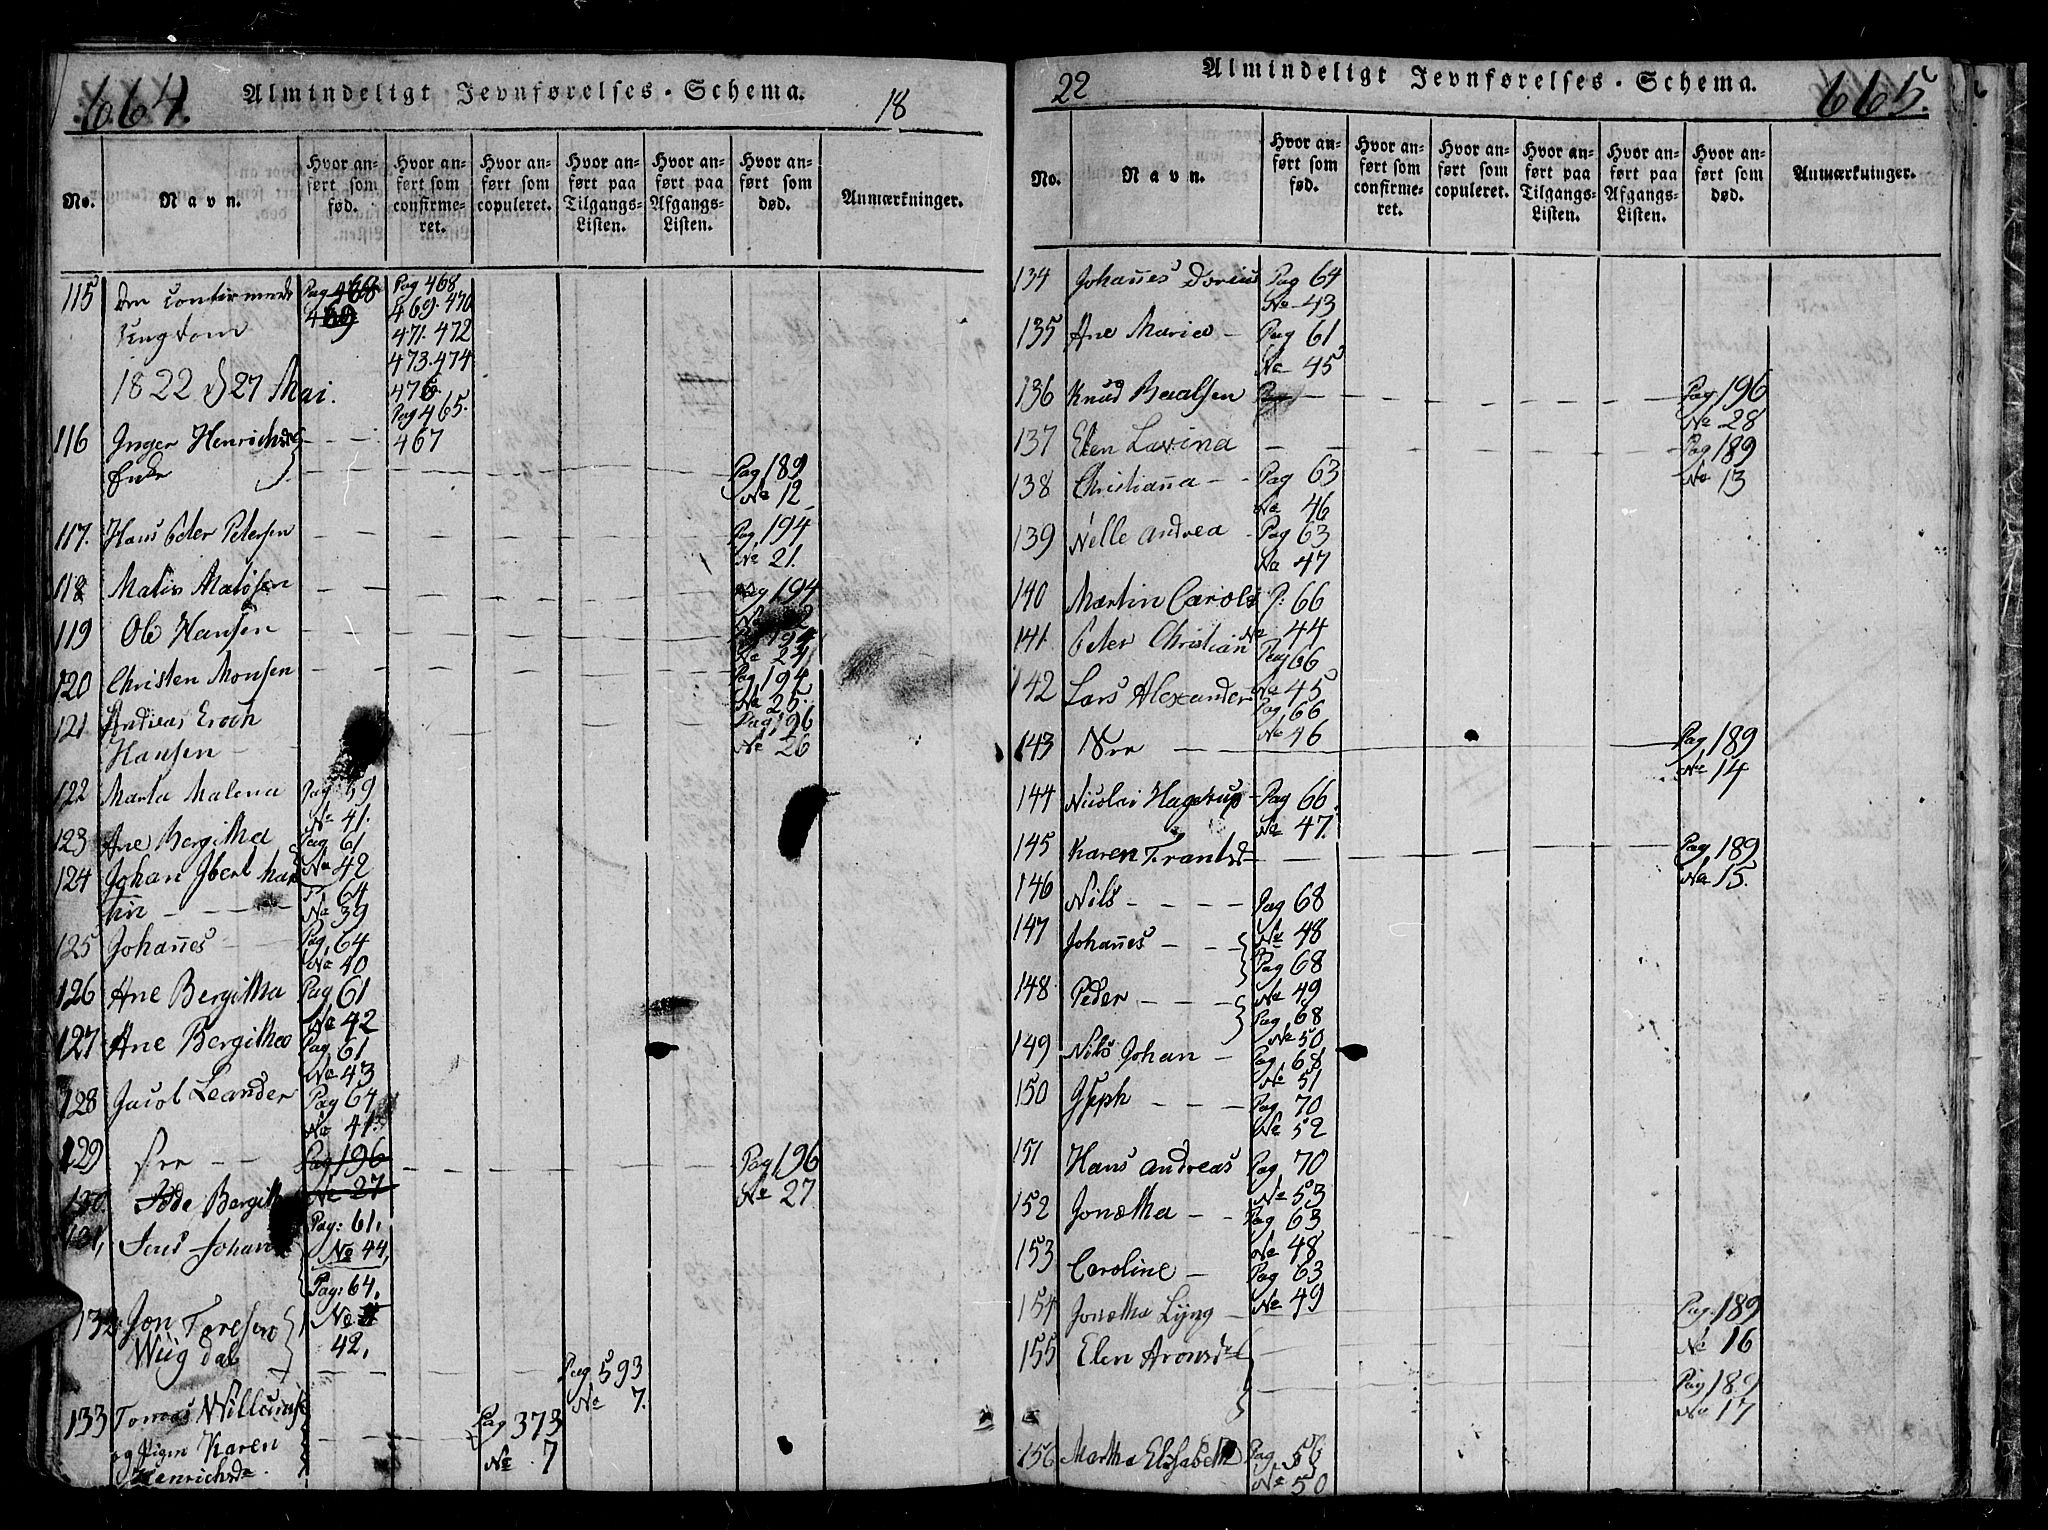 664. Almindeligt Jevnførelses-Schema. 18
No. Navn. Hvor anført som fød. Hvor anført som confirmeret. Hvor anført som copuleret. Hvor anført paa Tilgangs-Listen. Hvor anført paa Afgangs-Listen. Hvor anført som død. Anmærkninger.
115 den confirmede Pag 468 Pag 468
Ungdom 469 469. 470
471. 472
473. 474
1822 d 27 Mai. 476
Pag 465.
116 Inger Henrichsd 467
Enke Pag 189
No 12
117. Hans Peter Petersen Pag 194
No 21.
118 Matis Matisen Pag 194
119 Ole Hansen Pag 194
No 24
120 Christen Monsen Pag 194
No 25.
121 Andreas Enoch Pag 196
Hansen No 26
122 Marta Malena Pag 59
No 41.
123 Ane Bergitha Pag 61
No 42
124 Johan Jbert Mar P. 64
tin No 39
125 Johañes Pag 64
No 40
126 Ane Bergitha Pag 61
No 42
127 Ane Bergitha Pag 61
No 43
128 Jacob Leander Pag 64
No 41.
129 Pag 196 Pag 196
No 27 No 27
130 Bergith Pag: 61.
No 44,
131, Jens Johan Pag: 64,
No
42,
132 Jon Toresen
Wiigdal Pag 593
No 7.
133 Tomas Willumse Pag 373
og Pigen Karen No 7
Henrichsd.
22 Almindeligt Jevnførelses-Schema. 665.
No. Navn. Hvor anført som fød. Hvor anført som confirmeret. Hvor anført som copuleret. Hvor anført paa Tilgangs-Listen. Hvor anført paa Afgangs-Listen. Hvor anført som død. Anmærkninger.
134 Johañes Dorius Pag 64
No 43
135 Ane Maria Pag 61
No 45
136 Knud Baalsen Pag Pag 196
No 28
137 Elen Lavina Pag 189
No 13
138 Christiaña Pag 63
No 46
139 Nelle Andrea Pag 63
No 47
140 Martin Carols P: 66
No 44
141. Peter Christian Pag 66
No 45
142 Lars Alexander Pag 66
No 46
143 Pag 189
No 14
144 Nicolai Hagerup Pag 66
No 47.
145 Karen Frantsd Pag 189
No 15.
146 Nils Pag 68
No 48
147 Johañes Pag 68
No 49
148 Peder Pag 68
No 50
149 Nils Johan Pag 68
No 51
150 Joseph Pag 70
No 52
151 Hans Andreas Pag 70
No 53
152 Jonetha Pag 63
No 48
153 Caroline Pag 63
No 49
154 Jonetha Lÿng Pag. 189
No 16
155 Elen Aronsd
Pag 189
No 17
156 Martha Elisabeth Pag 56
No 50